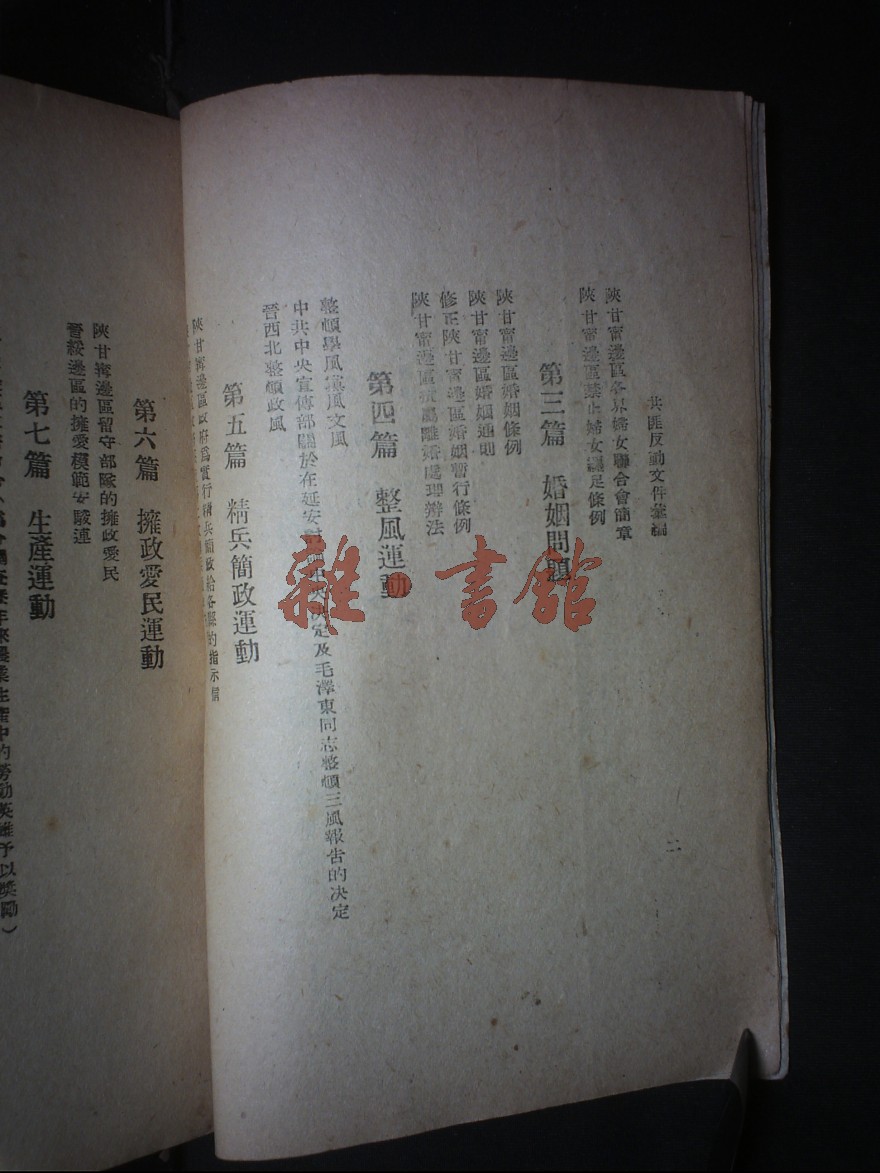 共匪反動文件彙編
二
陝甘甯邊區各界婦女聯合會簡章
陝甘甯邊區禁止婦女纏足條例
第三篇 婚姻問題
陝甘甯邊區婚姻條例
陝甘甯邊區婚姻通則
修正陝甘甯邊區婚姻暫行條例
陝甘甯邊區抗屬離婚處理辦法
第四篇 整風運動
整頓學風黨風文風
中共中央宣傳部關於在延安討論中央決定及毛澤東同志整頓三風報告的决定
晉西北整頓政風
第五篇 精兵簡政運動
陝甘甯邊區政府爲實行精兵簡政給各縣的指示信
第六篇 擁政愛民運動
陝甘甯邊區留守部隊的擁政愛民
晉綏邊區的擁愛模範安駿連
第七篇 生產運動
年來農業生產中的勞動英雄予以獎勵）
雜書館